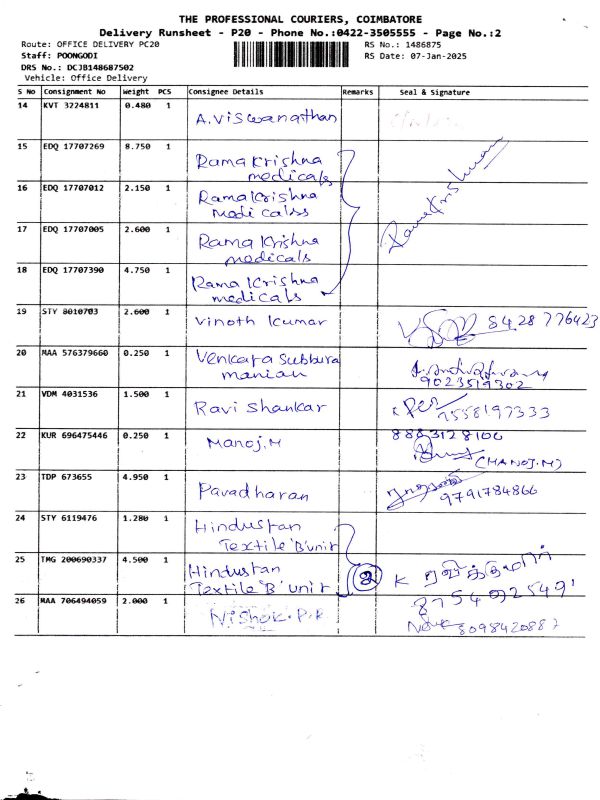 THE PROFESSIONAL COURIERS, COIMBATORE
Delivery Runsheet - P20 - Phone No.:0422-3505555 - Page No.:2
Route: OFFICE DELIVERY PC20 RS No.: 1486875
Staff: POONGODI RS Date: 07-Jan-2025
DRS No.: DCJB148687502
Vehicle: Office Delivery
S No Consignment No Weight PCS Consignee Details Remarks Seal & Signature
14 KVT 3224811 0.480 1 A.Viswanathan
15 EDQ 17707269 8.750 1 Rama Krishna
medicals
16 EDQ 17707012 2.150 1 Rama Krishna
medicalss
17 EDQ 17707005 2.600 1 Rama Krishna
medicals
Rama Krishnan
18 EDQ 17707390 4.750 1 Rama Krishna
medicals
19 STY 8010703 2.600 1 Vinoth Kumar 84 28 776423
20 MAA 576379660 0.250 1 Venkata Subbura
manian 9023519302
21 VDM 4031536 1.500 1 Ravi Shankar 7558197333
22 KUR 696475446 0.250 1 Manoj.M 8883128100
(MANOJ.M)
23 TDP 673655 4.950 1 Pavadharan 9791784866
24 STY 6119476 1.280 1 Hindustan
Textile 'B' unit
25 TMG 200690337 4.500 1 Hindustan
Textile 'B' unit 2 K ரவிக்குமார்
8754925491
26 MAA 706494059 2.000 1 Nishok.P.R 8098420887